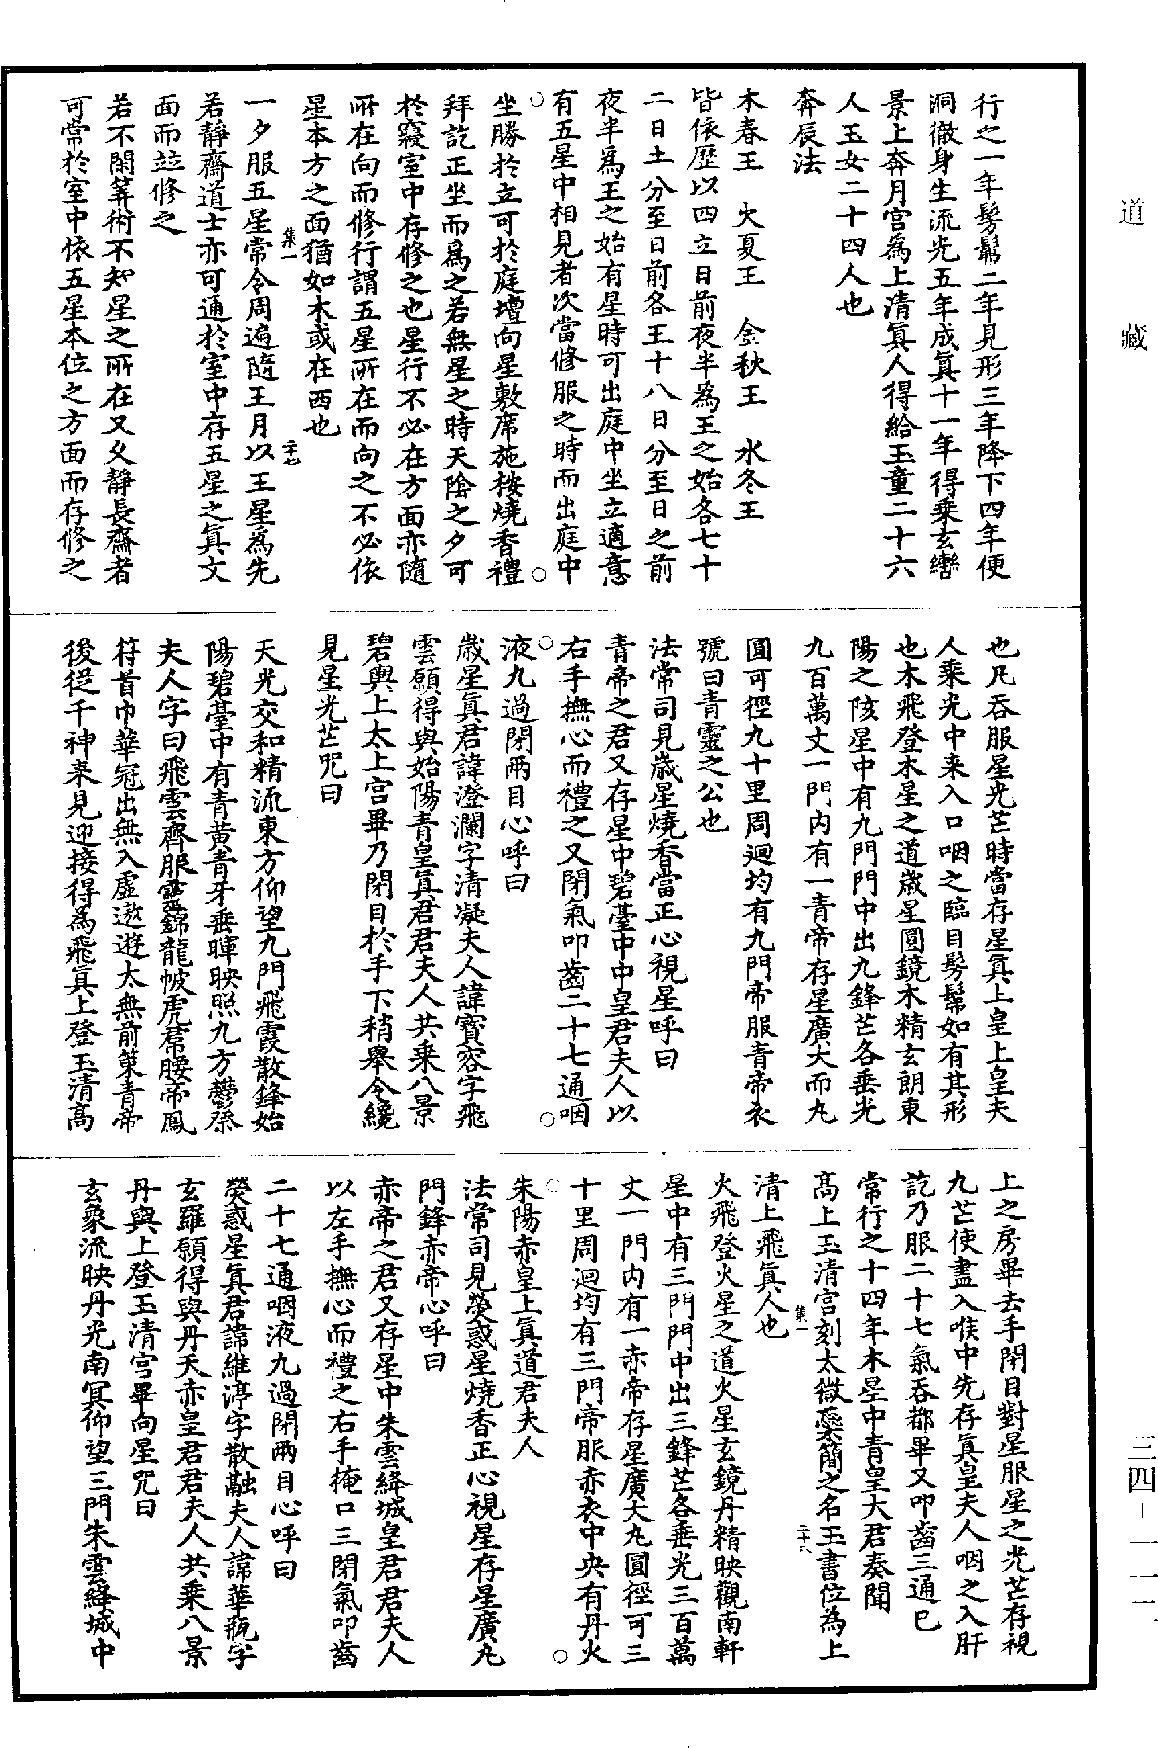 道藏
行之一年髣髴二年見形三年降下四年便
洞徹身生流光五年成真十一年得乘玄轡
景上奔月宮為上清真人得給玉童二十六
人玉女二十四人也
奔辰法
木春王　火夏王　金秋王　水冬王
皆依歷以四立日前夜半為王之始各七十
二日土分至日前各王十八日分至日之前
夜半為王之始有星時可出庭中坐立適意
有五星中相見者次當修服之時而出庭中
坐勝於立可於庭壇向星敷席施按燒香禮
拜訖正坐而為之若無星之時天陰之夕可
於寢室中存修之也星行不必在方面亦隨
所在向而修行謂五星所在而向之不必依
星本方之面猶如木或在西也
集一
二十七
一夕服五星常令周遍隨王月以王星為先
若靜齋道士亦可通於室中存五星之真文
面而竝修之
若不閑筭術不知星之所在又久靜長齋者
可常於室中依五星本位之方面而存修之
也凡吞服星光芒時當存星真上皇上皇夫
人乘光中來入口咽之臨目髣髴如有其形
也木飛登木星之道歲星圓鏡木精玄朗東
陽之陔星中有九門門中出九鋒芒各垂光
九百萬丈一門內有一青帝存星廣大而丸
圓可徑九十里周迴均有九門帝服青帝衣
號曰青靈之公也
法常司見歲星燒香當正心視星呼曰
青帝之君又存星中碧臺中中皇君夫人以
右手撫心而禮之又閉氣叩齒二十七通咽
液九過閉兩目心呼曰
歲星真君諱澄瀾字清凝夫人諱寶容字飛
雲願得與始陽青皇真君君夫人共乘八景
碧輿上太上宮畢乃閉目於手下稍舉令纔
見星光芒咒曰
天光交和精流東方仰望九門飛霞散鋒始
陽碧臺中有青黃青牙垂暉映照九方鬱粲
夫人字曰飛雲齊服靈錦龍帔虎帬腰帝鳳
符首巾華冠出無入虛遨遊太無前策青帝
後從千神來見迎接得為飛真上登玉清高
上之房畢去手閉目對星服星之光芒存視
九芒使盡入喉中先存真皇夫人咽之入肝
訖乃服二十七氣吞都畢又叩齒三通巳
常行之十四年木星中青皇大君奏聞
高上玉清宮刻太微蘂簡之名玉書位為上
清上飛真人也
集一
二十八
火飛登火星之道火星玄鏡丹精映觀南軒
星中有三門門中出三鋒芒各垂光三百萬
丈一門內有一赤帝存星廣大丸圓徑可三
十里周迴均有三門帝服赤衣中央有丹火
朱陽赤皇上真道君夫人
法常司見熒惑星燒香正心視星存星廣丸
門鋒赤帝心呼曰
赤帝之君又存星中朱雲絳城皇君君夫人
以左手撫心而禮之右手掩口三閉氣叩齒
二十七通咽液九過閉兩目心呼曰
熒惑星真君諱維渟字散融夫人諱華瓶字
玄羅願得與丹天赤皇君君夫人共乘八景
丹輿上登玉清宮畢向星咒曰
玄象流映丹光南冥仰望三門朱雲絳城中
三四－一一一